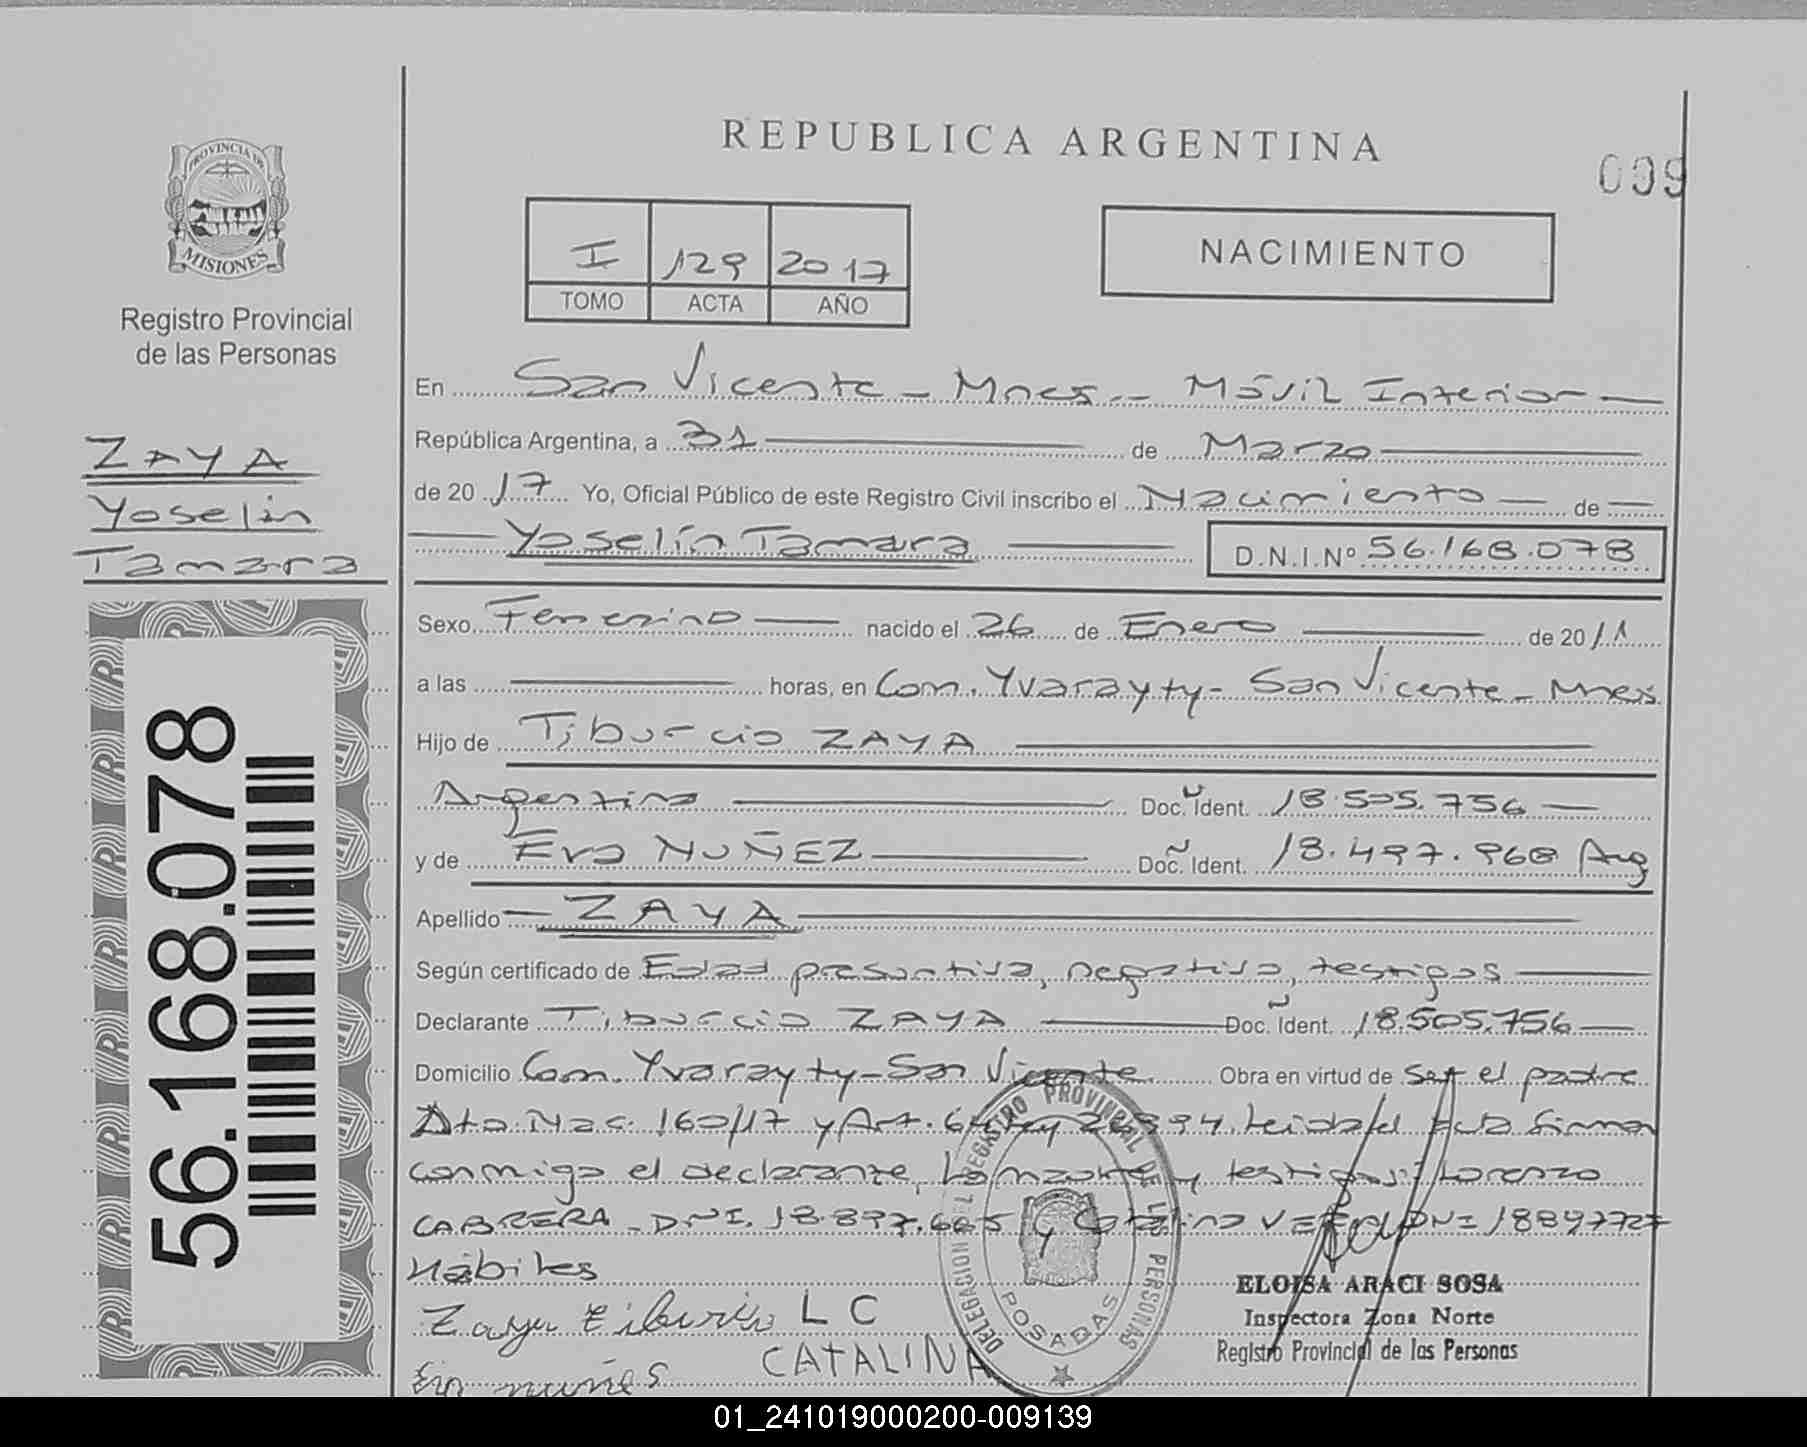 REPUBLICA ARGENTINA
009
PROVINCIA DE
MISIONES
Registro Provincial
de las Personas
I 129 2017
TOMO ACTA AÑO
NACIMIENTO
ZAYA
Yoselin
Tamara
56.168.078
En San Vicente - Mnes - Móvil Interior
República Argentina, a 31 de Marzo
de 2017 Yo, Oficial Público de este Registro Civil inscribo el Nacimiento de
Yoselín Tamara D.N.I.Nº 56.168.078
Sexo Femenino nacido el 26 de Enero de 2011
a las horas, en Com. Yvarayty - San Vicente - Mnes
Hijo de Tiburcio ZAYA
Argentino Doc. Ident. 18.505.756
y de Eva NUÑEZ Doc. Ident. 18.497.968 Arg
Apellido ZAYA
Según certificado de Edad presuntiva, negativa, testigos
Declarante Tiburcio ZAYA Doc. Ident. 18.505.756
Domicilio Com. Yvarayty - San Vicente Obra en virtud de Ser el padre
Dto Nac. 160/17 y Art. Ley Leída el acta firman
conmigo el declarante, la madre y testigos: Lorenzo
CABRERA - DNI. 18.897.665 y Catalina DNI 18897727
Hábiles
Zaya tiburcio L C
CATALINA
Eva nuñes
DELEGACION DEL REGISTRO PROVINCIAL DE LAS PERSONAS
POSADAS
ELOISA ARACI SOSA
Inspectora Zona Norte
Registro Provincial de las Personas
01_241019000200-009139